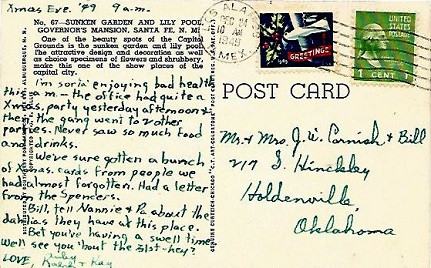 Xmas Eve. '49 9 a.m.
No. 67—SUNKEN GARDEN AND LILY POOL,
GOVERNOR'S MANSION, SANTA FE, N. M.
One of the beauty spots of the Capitol
Grounds is the sunken garden and lily pool.
The attractive design and decoration as well
as choice specimens of flowers and shrubbery,
make this one of the show places of the
capital city.
I'm sorta enjoying bad health
this a.m. - the office had quite a
Xmas. party yesterday afternoon &
then the gang went to 2 other
parties. Never saw so much food
and drinks.
We've sure gotten a bunch
of Xmas. cards from people we
had almost forgotten. Had a letter
from the Spencers.
Bill, tell Nannie & Pa about the
dahlias they have at this place.
Bet you're having a swell time.
We'll see you 'bout the 31st-hey?
LOVE,
Ralph & Kay
DEC 24
10 AM
1949
N. MEX.
GREETINGS
1949
UNITED STATES
POSTAGE
1 CENT 1
POST CARD
Mr. & Mrs. J. W. Cornish & Bill
217 S. Hinckley
Holdenville,
Oklahoma